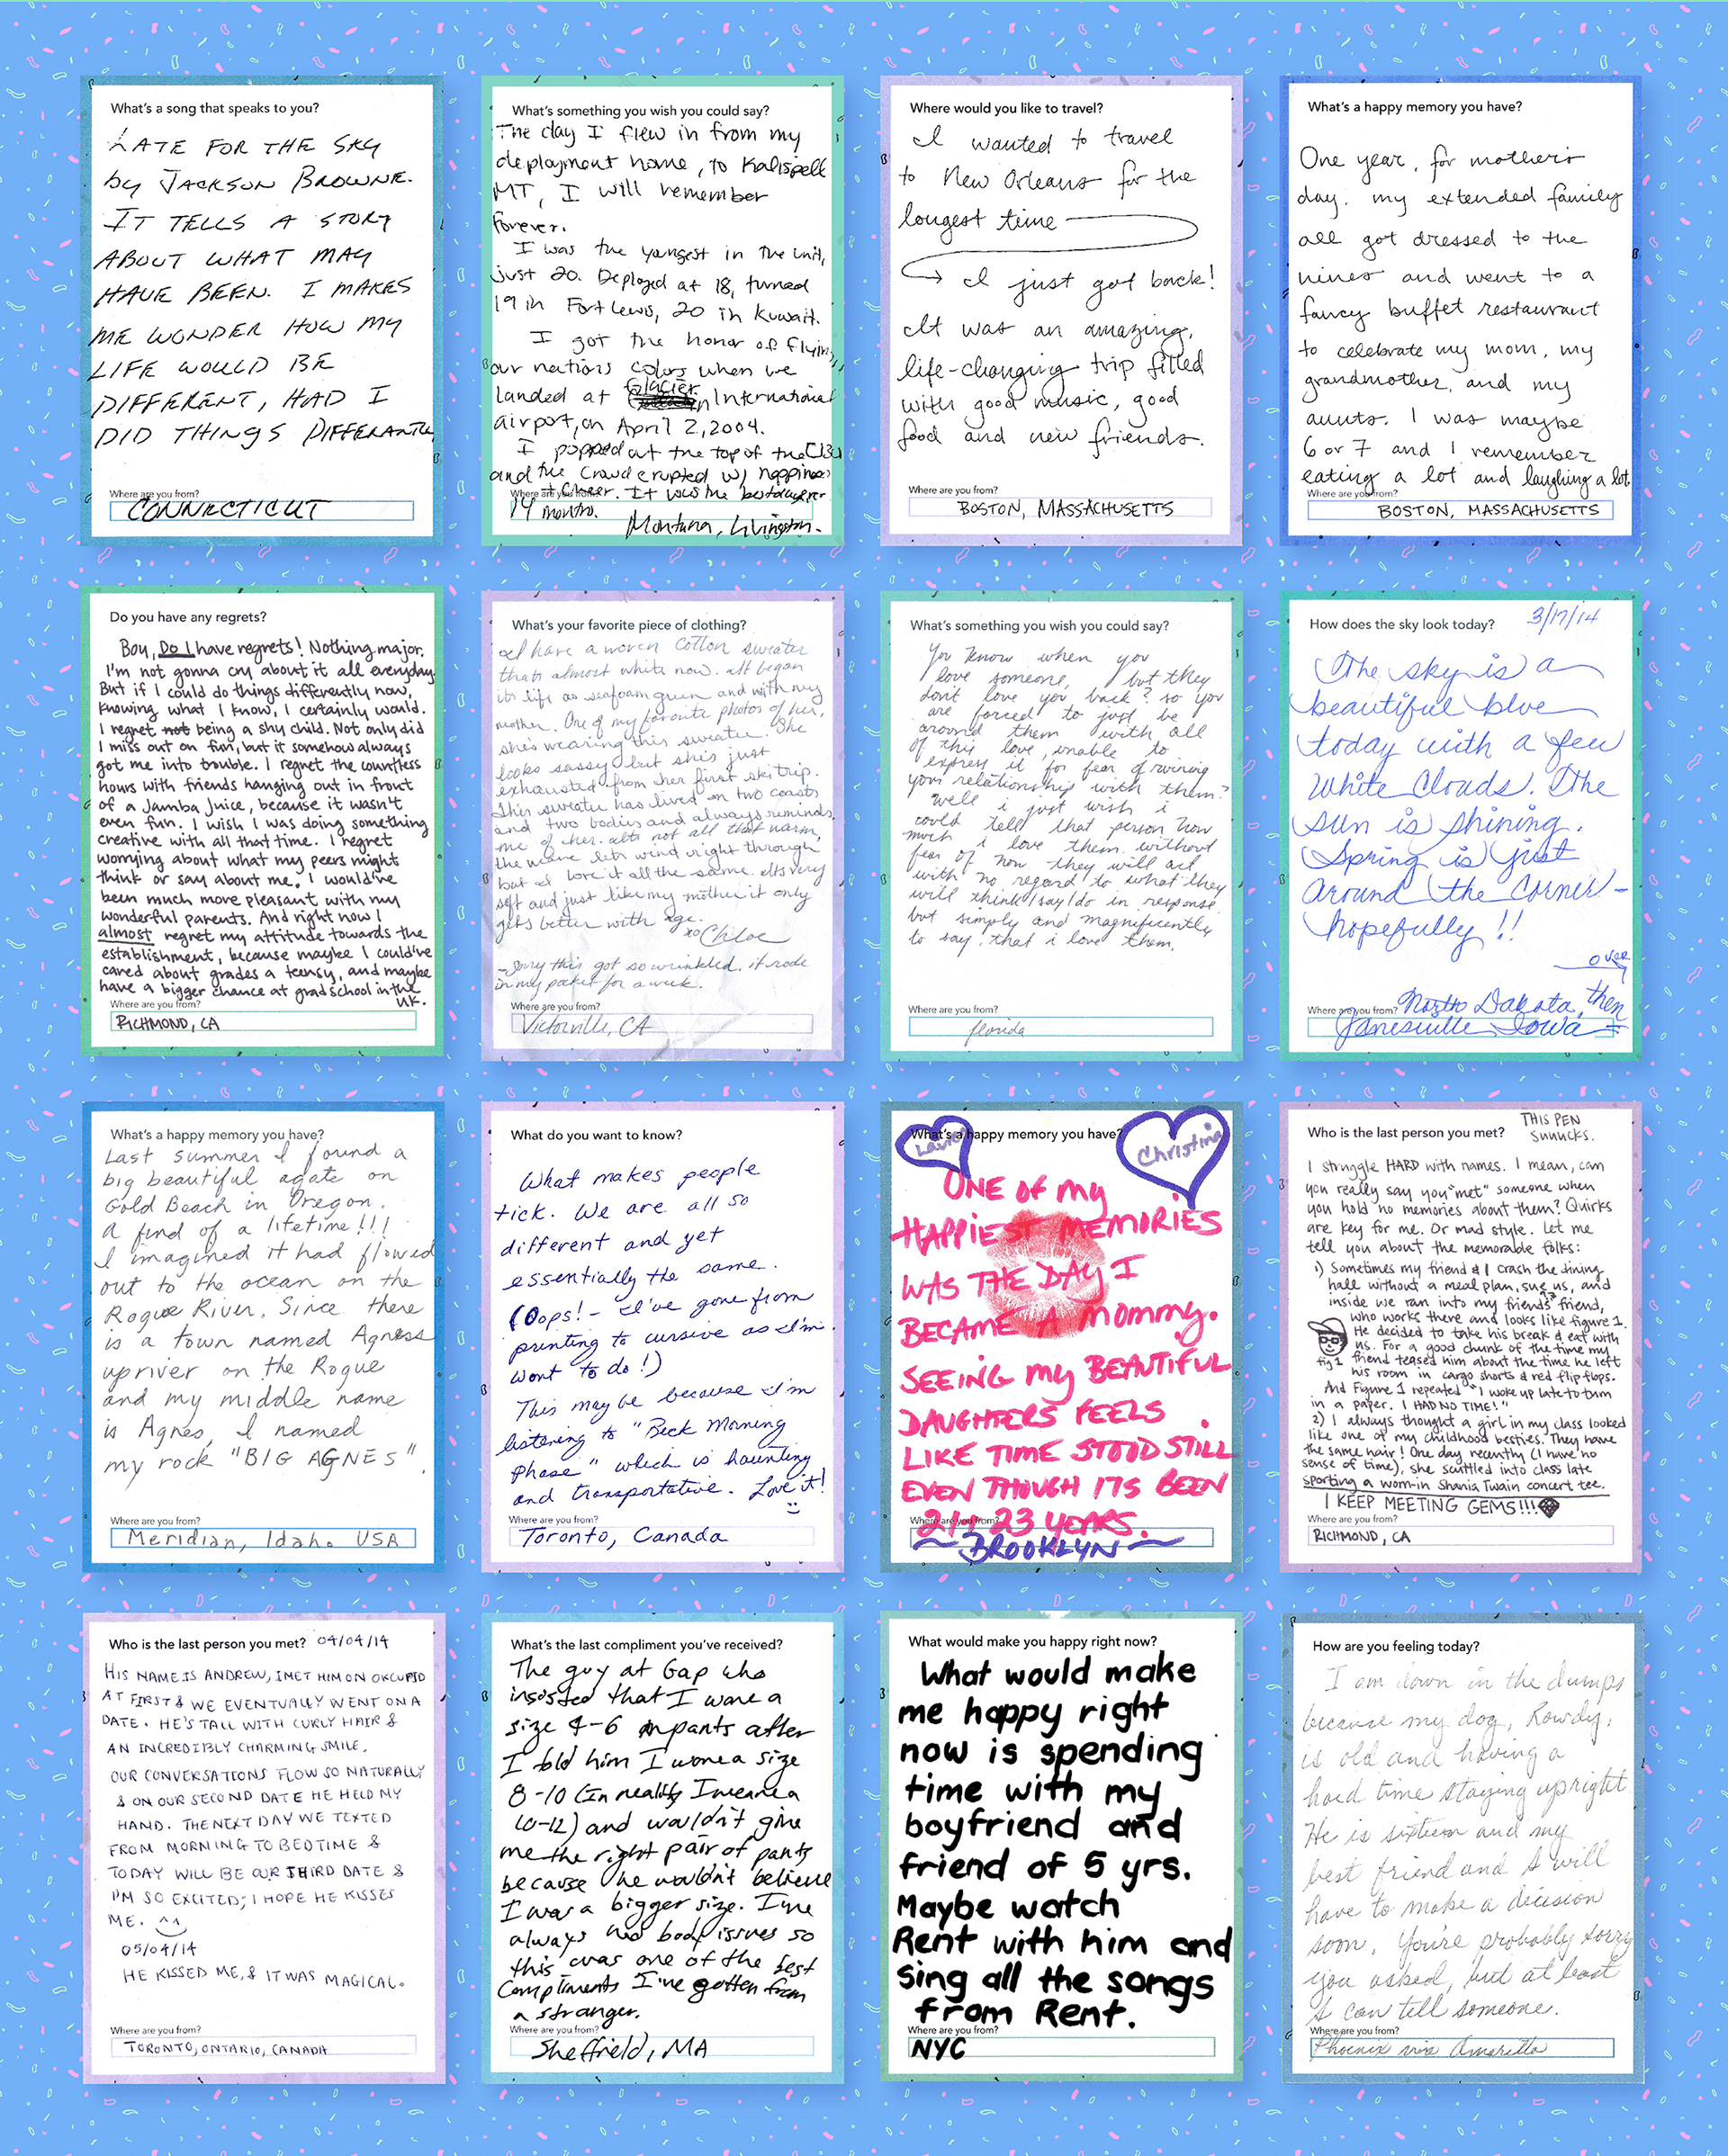 What's a song that speaks to you?
LATE FOR THE SKY
by JACKSON BROWNE.
IT TELLS A STORY
ABOUT WHAT MAY
HAVE BEEN. I MAKES
ME WONDER HOW MY
LIFE WOULD BE
DIFFERENT, HAD I
DID THINGS DIFFERANTLY
Where are you from?
CONNECTICUT
What's something you wish you could say?
The day I flew in from my
deployment home, to Kalispell
MT, I will remember
forever.
I was the yongest in the unit,
just 20. Deployed at 18, turned
19 in Fort Lewis, 20 in Kuwait.
I got the honor of flying
our nations colors when we
landed at Glacier International
airport, on April 2, 2004.
I popped out the top of the C130
and the crowd erupted w/ happiness
+ cheer. It was the best day ever
Where are you from?
14 months.
Montana, Livingston.
Where would you like to travel?
I wanted to travel
to New Orleans for the
longest time
→ I just got back!
It was an amazing,
life-changing trip filled
with good music, good
food and new friends.
Where are you from?
BOSTON, MASSACHUSETTS
What's a happy memory you have?
One year, for mother's
day, my extended family
all got dressed to the
nines and went to a
fancy buffet restaurant
to celebrate my mom, my
grandmother, and my
aunts. I was maybe
6 or 7 and I remember
eating a lot and laughing a lot
Where are you from?
BOSTON, MASSACHUSETTS
Do you have any regrets?
Boy, Do I have regrets! Nothing major.
I'm not gonna cry about it all everyday.
But if I could do things differently now,
knowing what I know, I certainly would.
I regret not being a shy child. Not only did
I miss out on fun, but it somehow always
got me into trouble. I regret the countless
hours with friends hanging out in front
of a Jamba Juice, because it wasn't
even fun. I wish I was doing something
creative with all that time. I regret
worrying about what my peers might
think or say about me. I would've
been much more pleasant with my
wonderful parents. And right now I
almost regret my attitude towards the
establishment, because maybe I could've
cared about grades a teensy, and maybe
have a bigger chance at grad school in the
UK.
Where are you from?
RICHMOND, CA
What's your favorite piece of clothing?
I have a woven cotton sweater
thats almost white now. It began
its life as seafoam green and with my
mother. One of my favorite photos of her,
she's wearing this sweater. She
looks sassy but she's just
exhausted from her first ski trip.
This sweater has lived on two coasts
and two bodies and always reminds
me of her. Its not all that warm,
the weave lets wind right through
but I love it all the same. Its very
soft and just like my mother it only
gets better with age.
xo Chloe
-Sorry this got so wrinkled. it rode
in my pocket for a week.
Where are you from?
Victorville, CA
What's something you wish you could say?
You know when you
love someone, but they
don't love you back? so you
are forced to just be
around them with all
of this love, unable to
express it for fear of ruining
your relationship with them?
Well i just wish i
could tell that person how
much i love them without
fear of how they will act
with no regard to what they
will think/say/do in response
but simply and magnificently
to say, that i love them.
Where are you from?
florida
How does the sky look today?
3/17/14
The sky is a
beautiful blue
today with a few
white clouds. The
sun is shining.
Spring is just
around the corner -
hopefully!!
over
Where are you from? North Dakota, then
Janesville Iowa
What's a happy memory you have?
Last summer I found a
big beautiful agate on
Gold Beach in Oregon.
A find of a lifetime!!!
I imagined it had flowed
out to the ocean on the
Rogue River. Since there
is a town named Agness
upriver on the Rogue
and my middle name
is Agnes, I named
my rock "BIG AGNES".
Where are you from?
Meridian, Idaho USA
What do you want to know?
What makes people
tick. We are all so
different and yet
essentially the same.
(Oops! - I've gone from
printing to cursive as I'm
wont to do!)
This may be because I'm
listening to "Beck Morning
Phase" which is haunting
and transportative. Love it!
Where are you from?
Toronto, Canada
What's a happy memory you have?
Christina
ONE OF MY
HAPPIEST MEMORIES
WAS THE DAY I
BECAME A MOMMY.
SEEING MY BEAUTIFUL
DAUGHTERS FEELS
LIKE TIME STOOD STILL
EVEN THOUGH ITS BEEN
Where are you from?
21, 23 YEARS.
BROOKLYN
THIS PEN
SUUUCKS.
Who is the last person you met?
I struggle HARD with names. I mean, can
you really say you "met" someone when
you hold no memories about them? Quirks
are key for me. Or mad style. Let me
tell you about the memorable folks:
1) Sometimes my friend & I crash the dining
hall without a meal plan, sue us, and
inside we ran into my friends' friend,
who works there and looks like figure 1.
He decided to take his break & eat with
us. For a good chunk of the time my
fig 1 friend teased him about the time he left
his room in cargo shorts & red flip flops.
And Figure 1 repeated "I woke up late to turn
in a paper. I HAD NO TIME!"
2) I always thought a girl in my class looked
like one of my childhood besties. They have
the same hair! One day recently (I have no
sense of time), she scuttled into class late
sporting a worn-in Shania Twain concert tee.
I KEEP MEETING GEMS!!!
Where are you from?
RICHMOND, CA
Who is the last person you met? 04/04/14
HIS NAME IS ANDREW, I MET HIM ON OKCUPID
AT FIRST & WE EVENTUALLY WENT ON A
DATE. HE'S TALL WITH CURLY HAIR &
AN INCREDIBLY CHARMING SMILE.
OUR CONVERSATIONS FLOW SO NATURALLY
& ON OUR SECOND DATE HE HELD MY
HAND. THE NEXT DAY WE TEXTED
FROM MORNING TO BEDTIME &
TODAY WILL BE OUR THIRD DATE &
I'M SO EXCITED; I HOPE HE KISSES
ME. ^^
05/04/14
HE KISSED ME, & IT WAS MAGICAL.
Where are you from?
TORONTO, ONTARIO, CANADA
What's the last compliment you've received?
The guy at Gap who
insisted that I wore a
size 4-6 in pants after
I told him I wore a size
8-10 (In reality I wear a
10-12) and wouldn't give
me the right pair of pants
because he wouldn't believe
I was a bigger size. I've
always had body issues so
this was one of the best
compliments I've gotten from
a stranger.
Where are you from?
Sheffield, MA
What would make you happy right now?
What would make
me happy right
now is spending
time with my
boyfriend and
friend of 5 yrs.
Maybe watch
Rent with him and
sing all the songs
from Rent.
Where are you from?
NYC
How are you feeling today?
I am down in the dumps
because my dog, Rowdy,
is old and having a
hard time staying upright.
He is sixteen and my
best friend and I will
have to make a decision
soon. You're probably sorry
you asked, but at least
I can tell someone.
Where are you from?
Phoenix via Amarillo